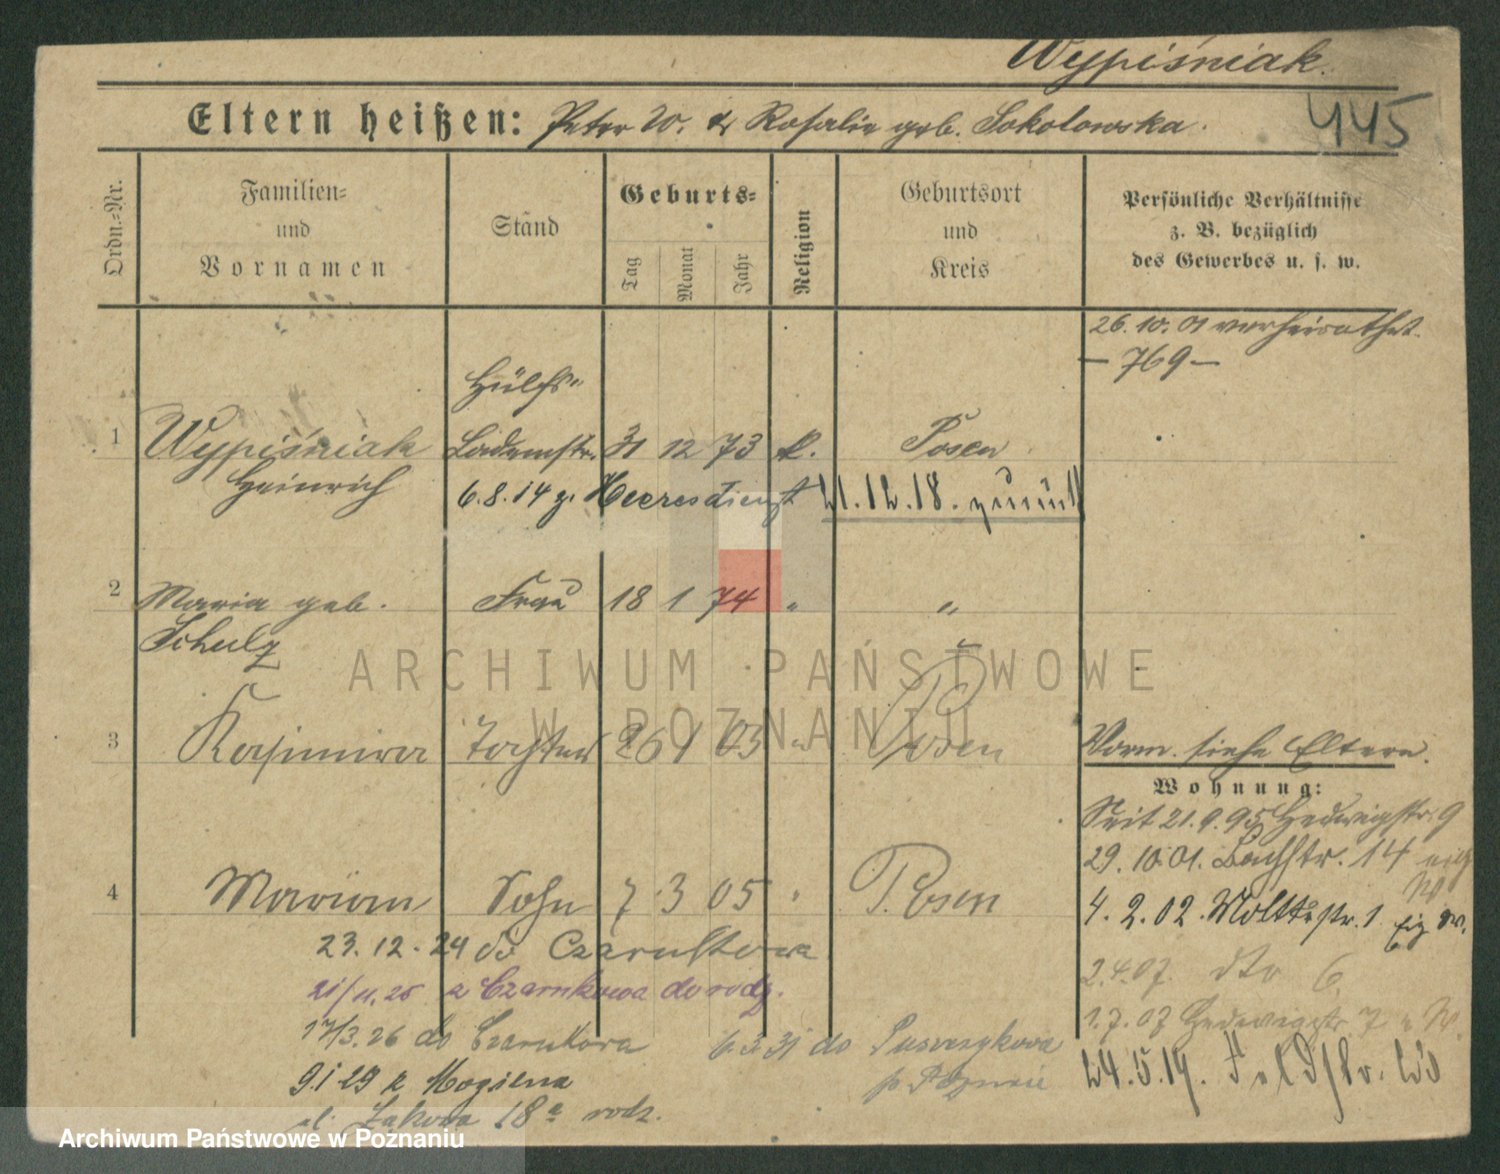 Wypiśniak.
445
Eltern heißen: Peter W. & Rosalie geb. Sokolowska.
Ordn.-Nr.
Familien-
und
Vornamen
Stand
Geburts-
Tag
Monat
Jahr
Religion
Geburtsort
und
Kreis
Persönliche Verhältnisse
z. B. bezüglich
des Gewerbes u. s. w.
26.10.01 verheirathet.
— 769 —
Hülfs-
1 Wypiśniak Lademstr. 31 12 73 k. Posen
Heinrich
6.8.14 z. Heeresdienst 21.12.18. zurück
2 Maria geb. Frau 18 1 74 " "
Schulz
3 Kasimira Tochter 26 1 03 " Posen
Vorm. siehe Eltern.
Wohnung:
Seit 21.9.95 Hedwigstr. 9
29.10.01. Bachstr. 14
4 Marian Sohn 7 3 05 " Posen
4.2.02. Moltkestr. 1. Eig. W.
23.12.24 do Czarnkowa
2.4.07. dto 6
21/11.25 z Czarnkowa do rodz.
1.7.07 Hedwigstr 7
17/3.26 do Czarnkowa
6.3.31 do Puszczykowa
p. Poznań
24.5.19.
9.1.29 z Mogilna
ul. Łąkowa 18a rodz.
ARCHIWUM PAŃSTWOWE
W POZNANIU
Archiwum Państwowe w Poznaniu